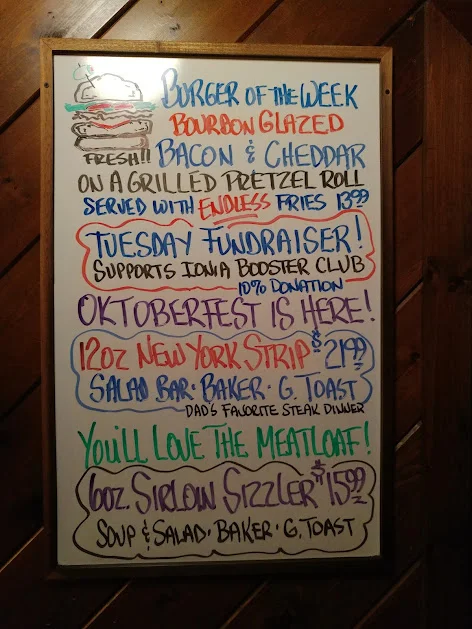 BURGER OF THE WEEK
BOURBON GLAZED
FRESH!! BACON & CHEDDAR
ON A GRILLED PRETZEL ROLL
SERVED WITH ENDLESS FRIES 13.99
TUESDAY FUNDRAISER!
SUPPORTS IONIA BOOSTER CLUB
10% DONATION
OKTOBERFEST IS HERE!
12OZ NEW YORK STRIP $21.99
SALAD BAR • BAKER • G. TOAST
DAD'S FAVORITE STEAK DINNER
YOU'LL LOVE THE MEATLOAF!
6OZ. SIRLOIN SIZZLER $15.99
SOUP & SALAD • BAKER • G. TOAST